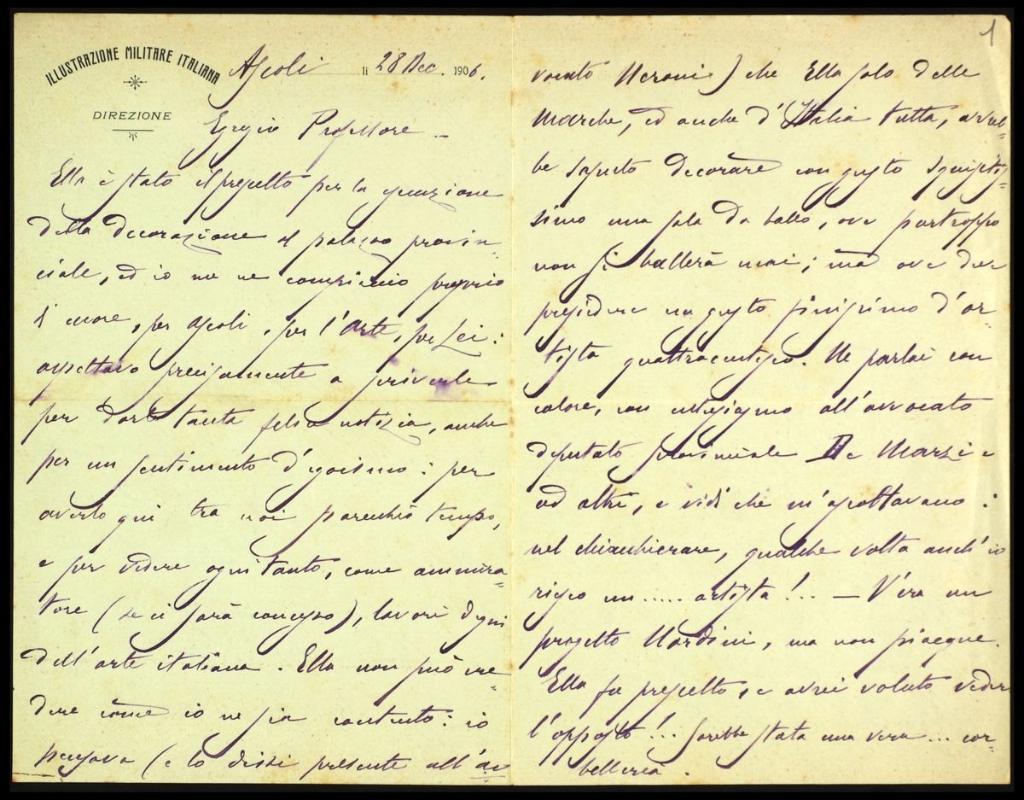 1
ILLUSTRAZIONE MILITARE ITALIANA
DIREZIONE
Ascoli li 28 Dec. 1906.
Egregio Professore —
Ella è stato il prescelto per la esecuzione
della decorazione al palazzo provin-
ciale, ed io me ne compiaccio proprio
di cuore, per Ascoli, per l'arte, per Lei:
aspettavo precisamente a scriverle
per darle tanta felice notizia, anche
per un sentimento d'egoismo: per
averlo qui tra noi parecchio tempo,
e per vedere ogni tanto, come ammira-
tore (se ci sarà concesso), lavori degni
dell'arte italiana. Ella non può cre-
dere come io ne sia contento: io
pensava (e lo dissi presente all'av-
vocato Neroni) che Ella solo delle
Marche, ed anche d'Italia tutta, avreb-
be saputo decorare con gusto squisitis-
simo una sala da ballo, ove purtroppo
non si ballerà mai; ma ove deve
presiedere un gusto finissimo d'ar-
tista quattrocentesco. Ne parlai con
calore, con entusiasmo all'avvocato
deputato provinciale De Marzi e
ad altri, e vidi che m'ascoltavano:
nel chiacchierare, qualche volta anch'io
riesco un ..... artista!.. — V'era un
progetto Nardini, ma non piacque.
Ella fu prescelto, e avrei voluto veder
l'opposto!.. Sarebbe stata una vera... cor-
belleria.